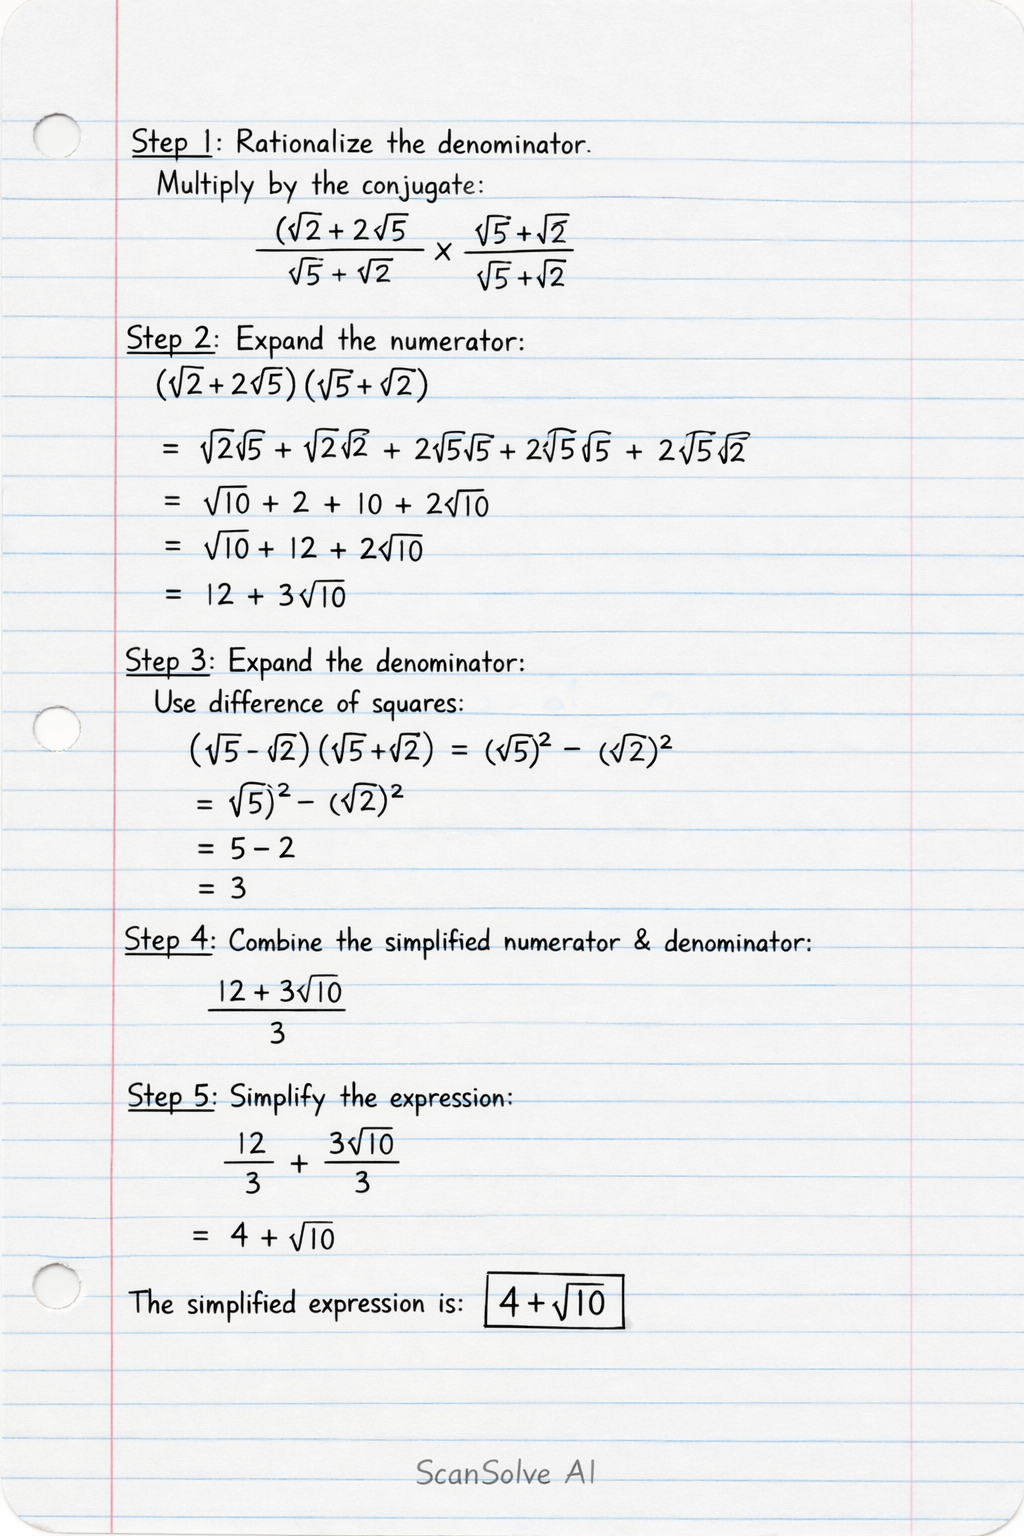 Step 1: Rationalize the denominator.
Multiply by the conjugate:
(√2 + 2√5 / √5 + √2 × √5 + √2 / √5 + √2
Step 2: Expand the numerator:
(√2 + 2√5) (√5 + √2)
= √2√5 + √2√2 + 2√5√5 + 2√5√5 + 2√5√2
= √10 + 2 + 10 + 2√10
= √10 + 12 + 2√10
= 12 + 3√10
Step 3: Expand the denominator:
Use difference of squares:
(√5 - √2) (√5 + √2) = (√5)² - (√2)²
= √5)² - (√2)²
= 5 - 2
= 3
Step 4: Combine the simplified numerator & denominator:
12 + 3√10 / 3
Step 5: Simplify the expression:
12 / 3 + 3√10 / 3
= 4 + √10
The simplified expression is: 4 + √10
ScanSolve AI